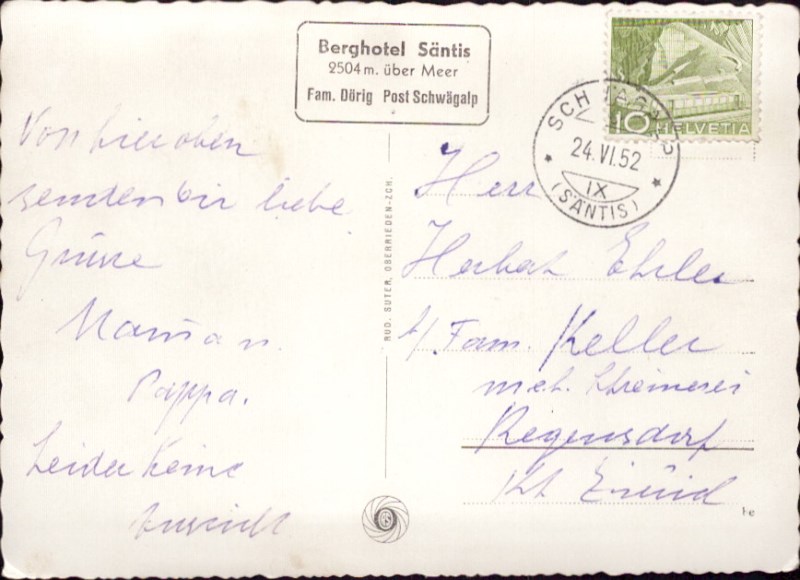 Berghotel Säntis
2504 m. über Meer
Fam. Dörig Post Schwägalp
10 HELVETIA
SCHWÄGALP
24.VI.52
IX
(SÄNTIS)
Von hier oben
senden dir liebe
Grüsse
Maman.
Pappa.
Leider keine
Aussicht
RUD. SUTER, OBERRIEDEN-ZCH.
Herr
Herbert Ehrler
b/ Fam. Keller
mech. Schreinerei
Regensdorf
Kt. Zürich
Fe